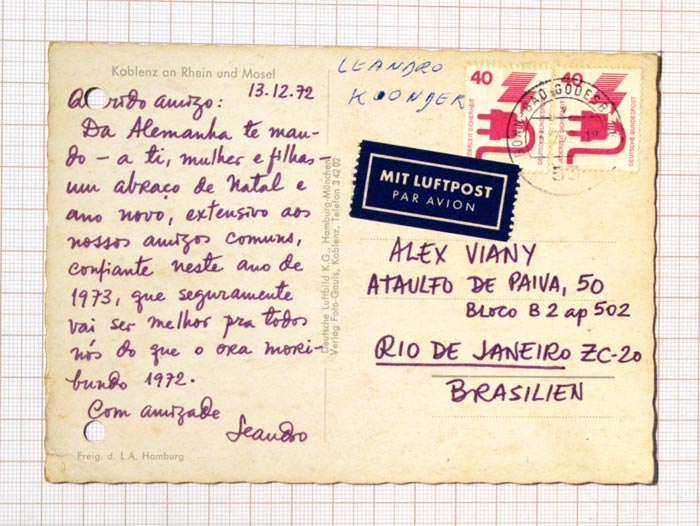 Koblenz an Rhein und Mosel
13.12.72
amigo:
Da Alemanha te man-
do – a ti, mulher e filhas –
um abraço de Natal e
ano novo, extensivo aos
nossos amigos comuns,
confiante neste ano de
1973, que seguramente
vai ser melhor pra todos
nós do que o ora mori-
bundo 1972.
Com amizade
Leandro
Freig. d. LA Hamburg
Deutsche Luftbild K.G. Hamburg-München
Verlag Foto-Gauls, Koblenz, Telefon 3 42 02
LEANDRO
40
40
DEUTSCHE BUNDESPOST
BONN-BAD GODESB
53
MIT LUFTPOST
PAR AVION
ALEX VIANY
ATAULFO DE PAIVA, 50
BLOCO B 2 ap 502
RIO DE JANEIRO ZC-20
BRASILIEN